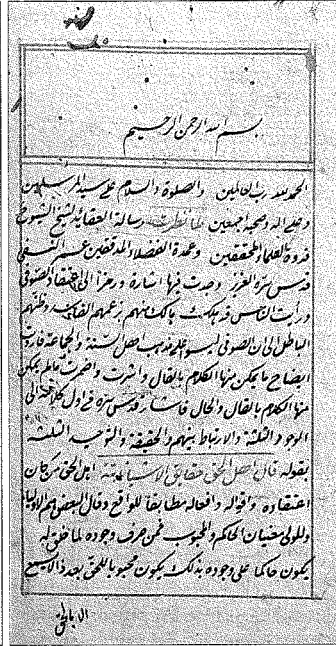 بسم الله الرحمن الرحيم
الحمد لله رب العالمين والصلوة والسلام على سيد المرسلين
وعلى اله وصحبه اجمعين لما نظرت رسالة العقائد لشيخ الشيوخ
قدوة العلماء المحققين وعمدة الفضلاء المدققين عمر النسفي
قدس سره العزيز وجدت فيها اشارة ورمزا الى اعتقاد الصوفي
ورأيت الناس قد هلك منهم بزعمهم الفاسد وظنهم
الباطل الى ان الصوفي ليسوا على مذهب اهل السنة والجماعة فاردت
ايضاح ما يمكن منها الكلام بالقال واشرت واضمرت مالم يمكن
منها الكلام بالقال والحال فاشار قدس سره في اول كلامه الى
الثلثة والارتباط بينهم والحقيقة والتوحيد الثلثة
بقوله قال اهل الحق حقايق الاشياء ثابتة اهل الحق من كان
اعتقاده واقواله وافعاله مطابقا للواقع وقال البعض هم الاولياء
وللمولى معنيان الحاكم والمحبوب فمن صرف وجوده لما خلق له
يكون حاكما على وجوده بذلك يكون محبوبا للحق بعده لا يسمع
الا بالحق